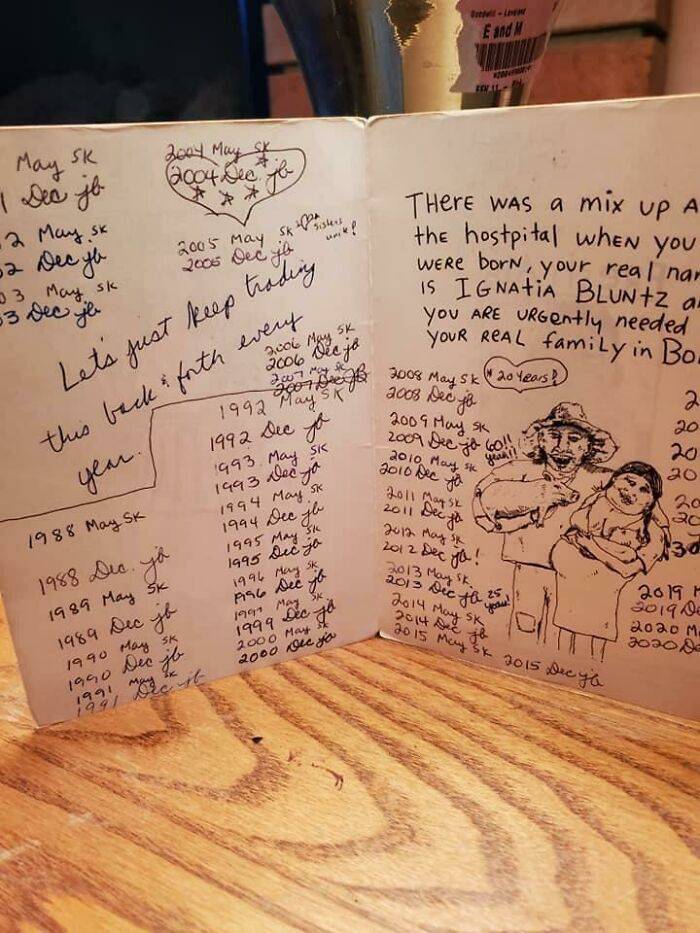 Goodwill - Loveland
E and M
May SK
1 Dec jb
2 May SK
2 Dec jb
03 May SK
3 Dec jb
2004 May SK
2004 Dec jb
2005 May SK
2005 Dec jb
Sisters
Let's just keep trading
this back & forth every
year.
2006 May SK
2006 Dec jb
2007 May SK
2007 Dec JB
1988 May SK
1988 Dec. jb
1989 May SK
1989 Dec jb
1990 May SK
1990 Dec jb
1991 May SK
1991 Dec jb
1992 May SK
1992 Dec jb
1993 May SK
1993 Dec jb
1994 May SK
1994 Dec jb
1995 May SK
1995 Dec jb
1996 May SK
1996 Dec jb
1999 May SK
1999 Dec jb
2000 May SK
2000 Dec jb
THERE WAS a mix up A
the hostpital wHEN you
WERE borN, your real nam
IS IGNATIA BLUNTZ a
you ARE URGENTLY needed
YOUR REAL family in Bo
2008 May SK
20 Years!
2008 Dec jb
2009 May SK
2009 Dec jb
60!!
2010 May SK
2010 Dec jb
2011 May SK
2011 Dec jb
2012 May SK
2012 Dec jb!
2013 May SK
2013 Dec jb
25
years!
2014 May SK
2014 Dec jb
2015 May SK
2015 Dec jb
2
20
20
20
20
20
30
2019 M
2019 De
2020 M
2020 De